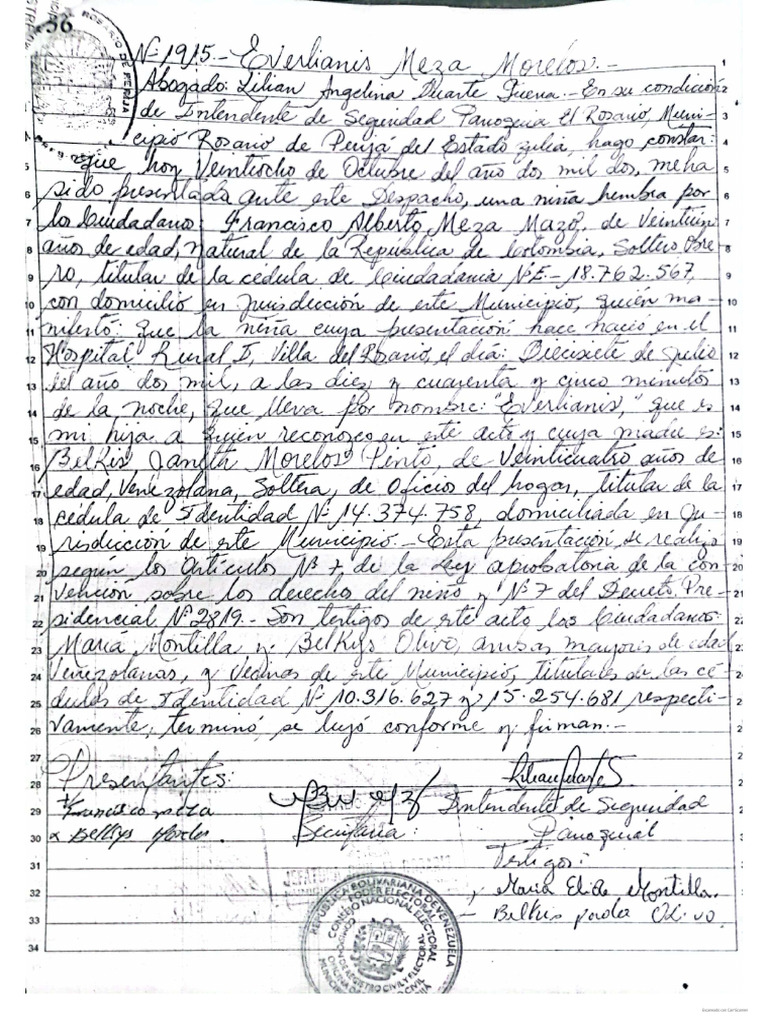 36
Nº 1915.- Everlianis Meza Morelos.-
Abogado: Lilian Angelina Duarte Guerra.- En su condición
de Intendente de Seguridad Parroquia El Rosario, Muni-
cipio Rosario de Perijá del Estado Zulia, hago constar:
que hoy Veintiocho de Octubre del año dos mil dos, me ha
sido presentada ante este Despacho, una niña hembra por
los Ciudadano: Francisco Alberto Meza Mazo, de Veintiún
años de edad, natural de la República de Colombia, Soltero Obre-
ro, titular de la cédula de Ciudadanía Nº E- 18.762.567,
con domicilio en jurisdicción de este Municipio, quién ma-
nifestó: que la niña cuya presentación hace nació en el
Hospital Rural I, Villa del Rosario, el día: Diecisiete de Julio
del año dos mil, a las diez y cuarenta y cinco minutos
de la noche, que lleva por nombre: "Everlianis," que es
mi hija a quien reconosco en este acto y cuya madre es:
Belkis Janeth Morelos Pinto de Veinticuatro años de
edad, Venezolana, Soltera, de Oficios del hogar, titular de la
cédula de Identidad Nº 14.374.758, domiciliada en Ju-
risdicción de este Municipio.- Esta presentación se realizó
segun los Artículos Nº 7 de la Ley aprobatoria de la con-
vención sobre los derecho del niño y Nº 7 del Decreto Pre-
sidencial Nº 2819.- Son testigos de este acto los Ciudadanos:
María Montilla y Belkys Olivo, ambas mayores de edad
Venezolanas, y vecinas de este Municipio, titulares de las cé-
dulas de Identidad Nº 10.316.627 y 15.254.681 respecti-
vamente; terminó, se leyó conforme y firman.-
Presentantes:
Francisco Meza
Intendente de Seguridad
Belkys Morelos
Secretaria:
Parroquial
Testigos:
María Elide Montilla
Belkis Olivo.
REPUBLICA BOLIVARIANA DE VENEZUELA
PODER ELECTORAL
CONSEJO NACIONAL ELECTORAL